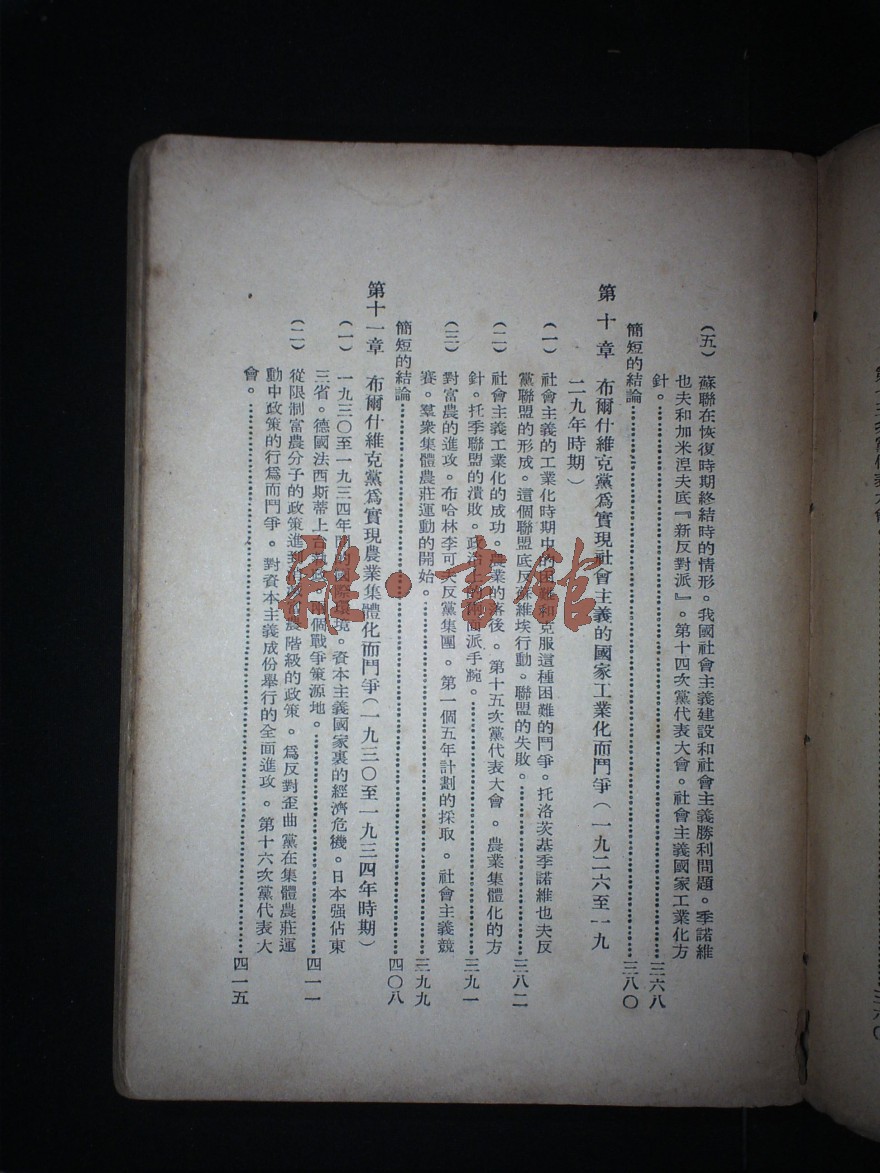 （五） 蘇聯在恢復時期終結時的情形。我國社會主義建設和社會主義勝利問題。季諾維
也夫和加米涅夫底『新反對派』。第十四次黨代表大會。社會主義國家工業化方
針。……三六八
簡短的結論……三八〇
第十章 布爾什維克黨爲實現社會主義的國家工業化而鬥爭（一九二六至一九
二九年時期）
（一） 社會主義的工業化時期中的困難和克服這種困難的鬥爭。托洛茨基季諾維也夫反
黨聯盟的形成。這個聯盟底反蘇維埃行動。聯盟的失敗。……三八二
（二） 社會主義工業化的成功。農業的落後。第十五次黨代表大會。農業集體化的方
針。托季聯盟的潰敗。政治上的兩面派手腕。……三九一
（三） 對富農的進攻。布哈林李可夫反黨集團。第一個五年計劃的採取。社會主義競
賽。羣衆集體農莊運動的開始。……三九九
簡短的結論……四〇八
第十一章 布爾什維克黨爲實現農業集體化而鬥爭（一九三〇至一九三四年時期）
（一） 一九三〇至一九三四年間的國際環境。資本主義國家裏的經濟危機。日本强佔東
三省。德國法西斯蒂上台 兩個戰爭策源地。……四一一
（二） 從限制富農分子的政策進到 富農階級的政策。爲反對歪曲黨在集體農莊運
動中政策的行爲而鬥爭。對資本主義成份舉行的全面進攻。第十六次黨代表大
會。……四一五
雜·書館